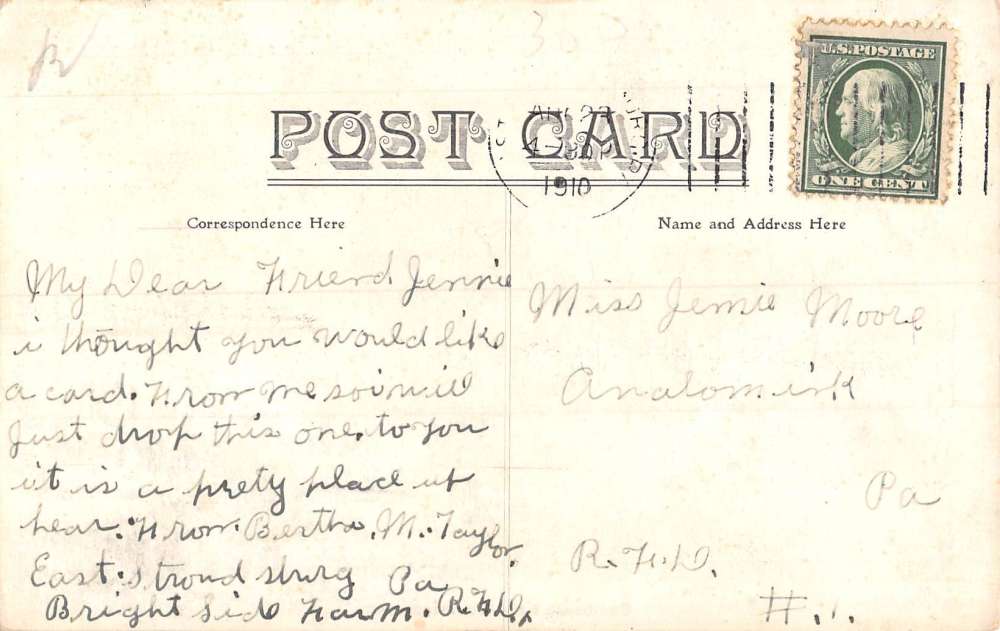 POST CARD
AUG 23
4-30P
1910
U.S. POSTAGE
ONE CENT
Correspondence Here
Name and Address Here
My Dear Friend Jennie
i thought you would like
a card. From me so i will
Just drop this one. to you
it is a prety place up
hear. From. Bertha. M. Taylor.
East. Stroudsburg Pa
Bright Side Farm. R.F.D.
Miss Jennie Moore
Analomink
Pa
R.F.D.
#.1.